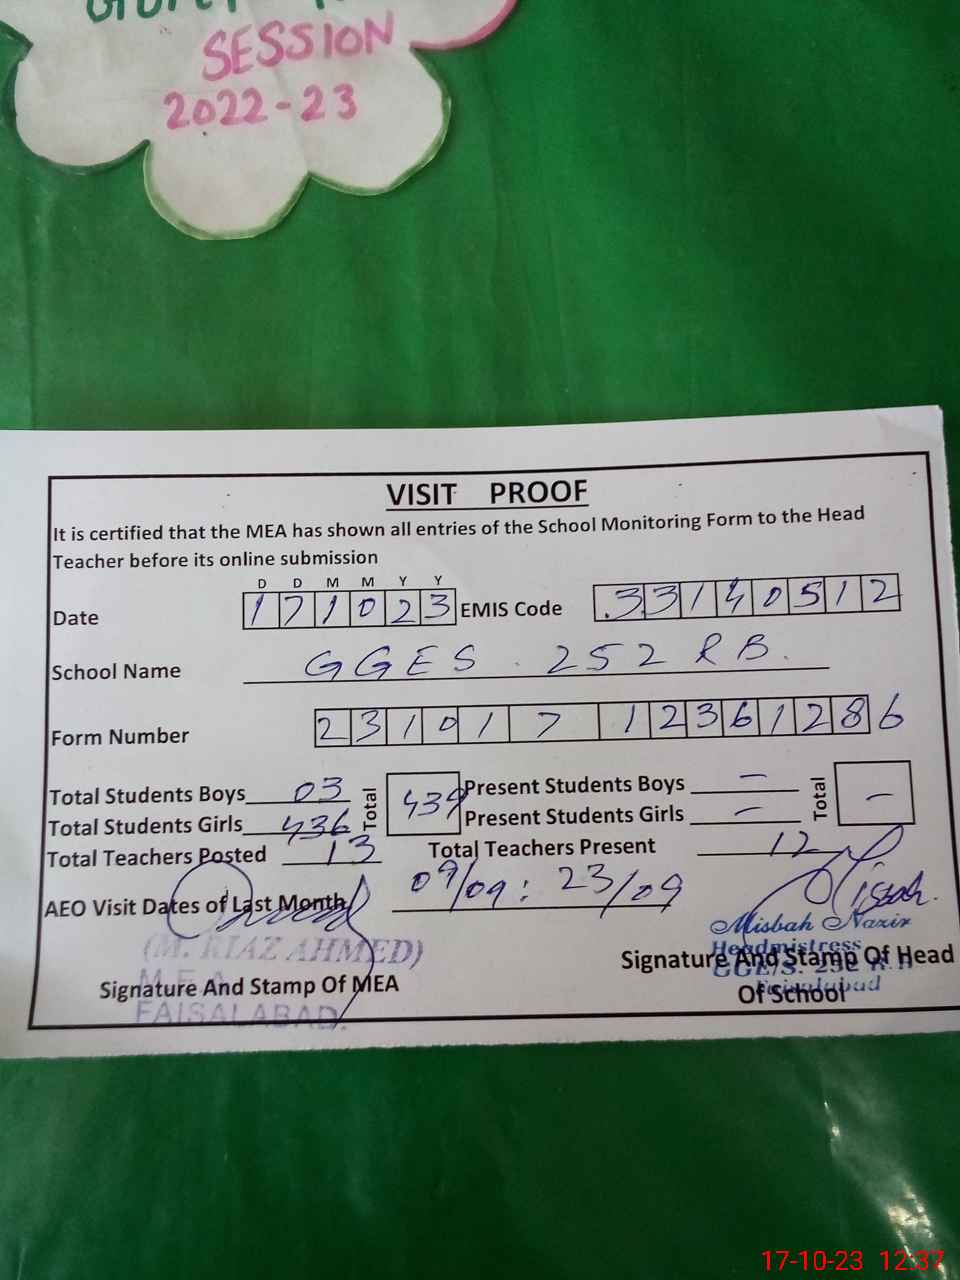 SESSION
2022-23
VISIT PROOF
It is certified that the MEA has shown all entries of the School Monitoring Form to the Head
Teacher before its online submission
D D M M Y Y
Date 171023 EMIS Code 33140512
School Name GGES 252 RB.
Form Number 23101712361286
Total Students Boys 03 Total 439 Present Students Boys - Total -
Total Students Girls 436 Present Students Girls -
Total Teachers Posted 13 Total Teachers Present 12
AEO Visit Dates of Last Month 09/09: 23/09
Misbah.
Misbah Nazir
(M. RIAZ AHMED)
Headmistress
Signature And Stamp Of Head
M.E.A
GGE/S. 252 R.B
Signature And Stamp Of MEA
Of School
Faisalabad
FAISALABAD.
17-10-23 12:37